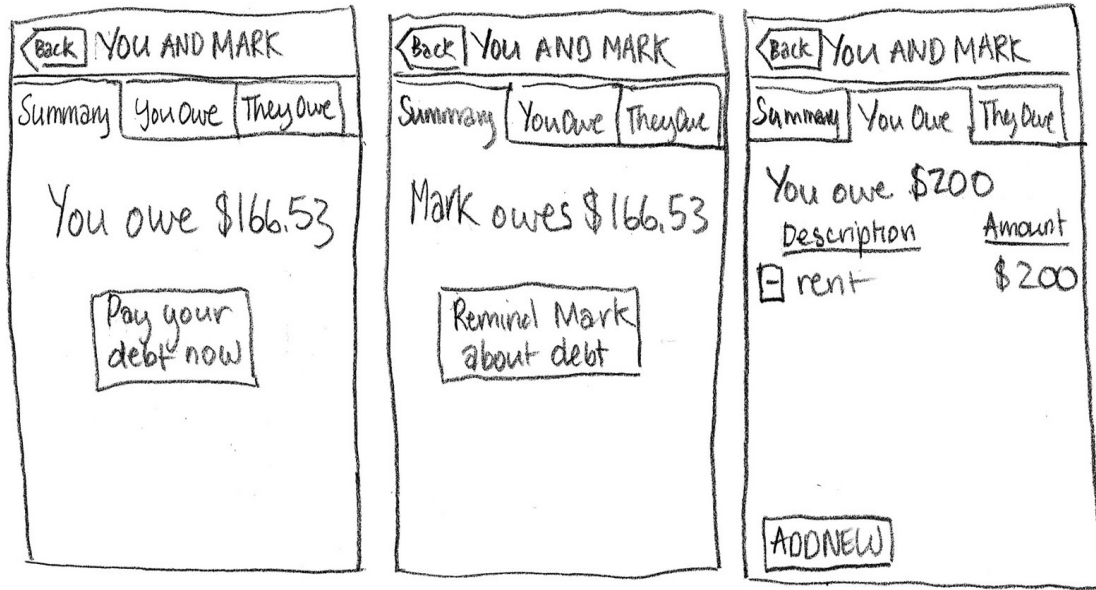 Back YOU AND MARK
Summary You Owe They Owe
You owe $166.53
Pay your
debt now
Back YOU AND MARK
Summary You Owe They Owe
Mark owes $166.53
Remind Mark
about debt
Back YOU AND MARK
Summary You Owe They Owe
You owe $200
Description Amount
rent $200
ADD NEW